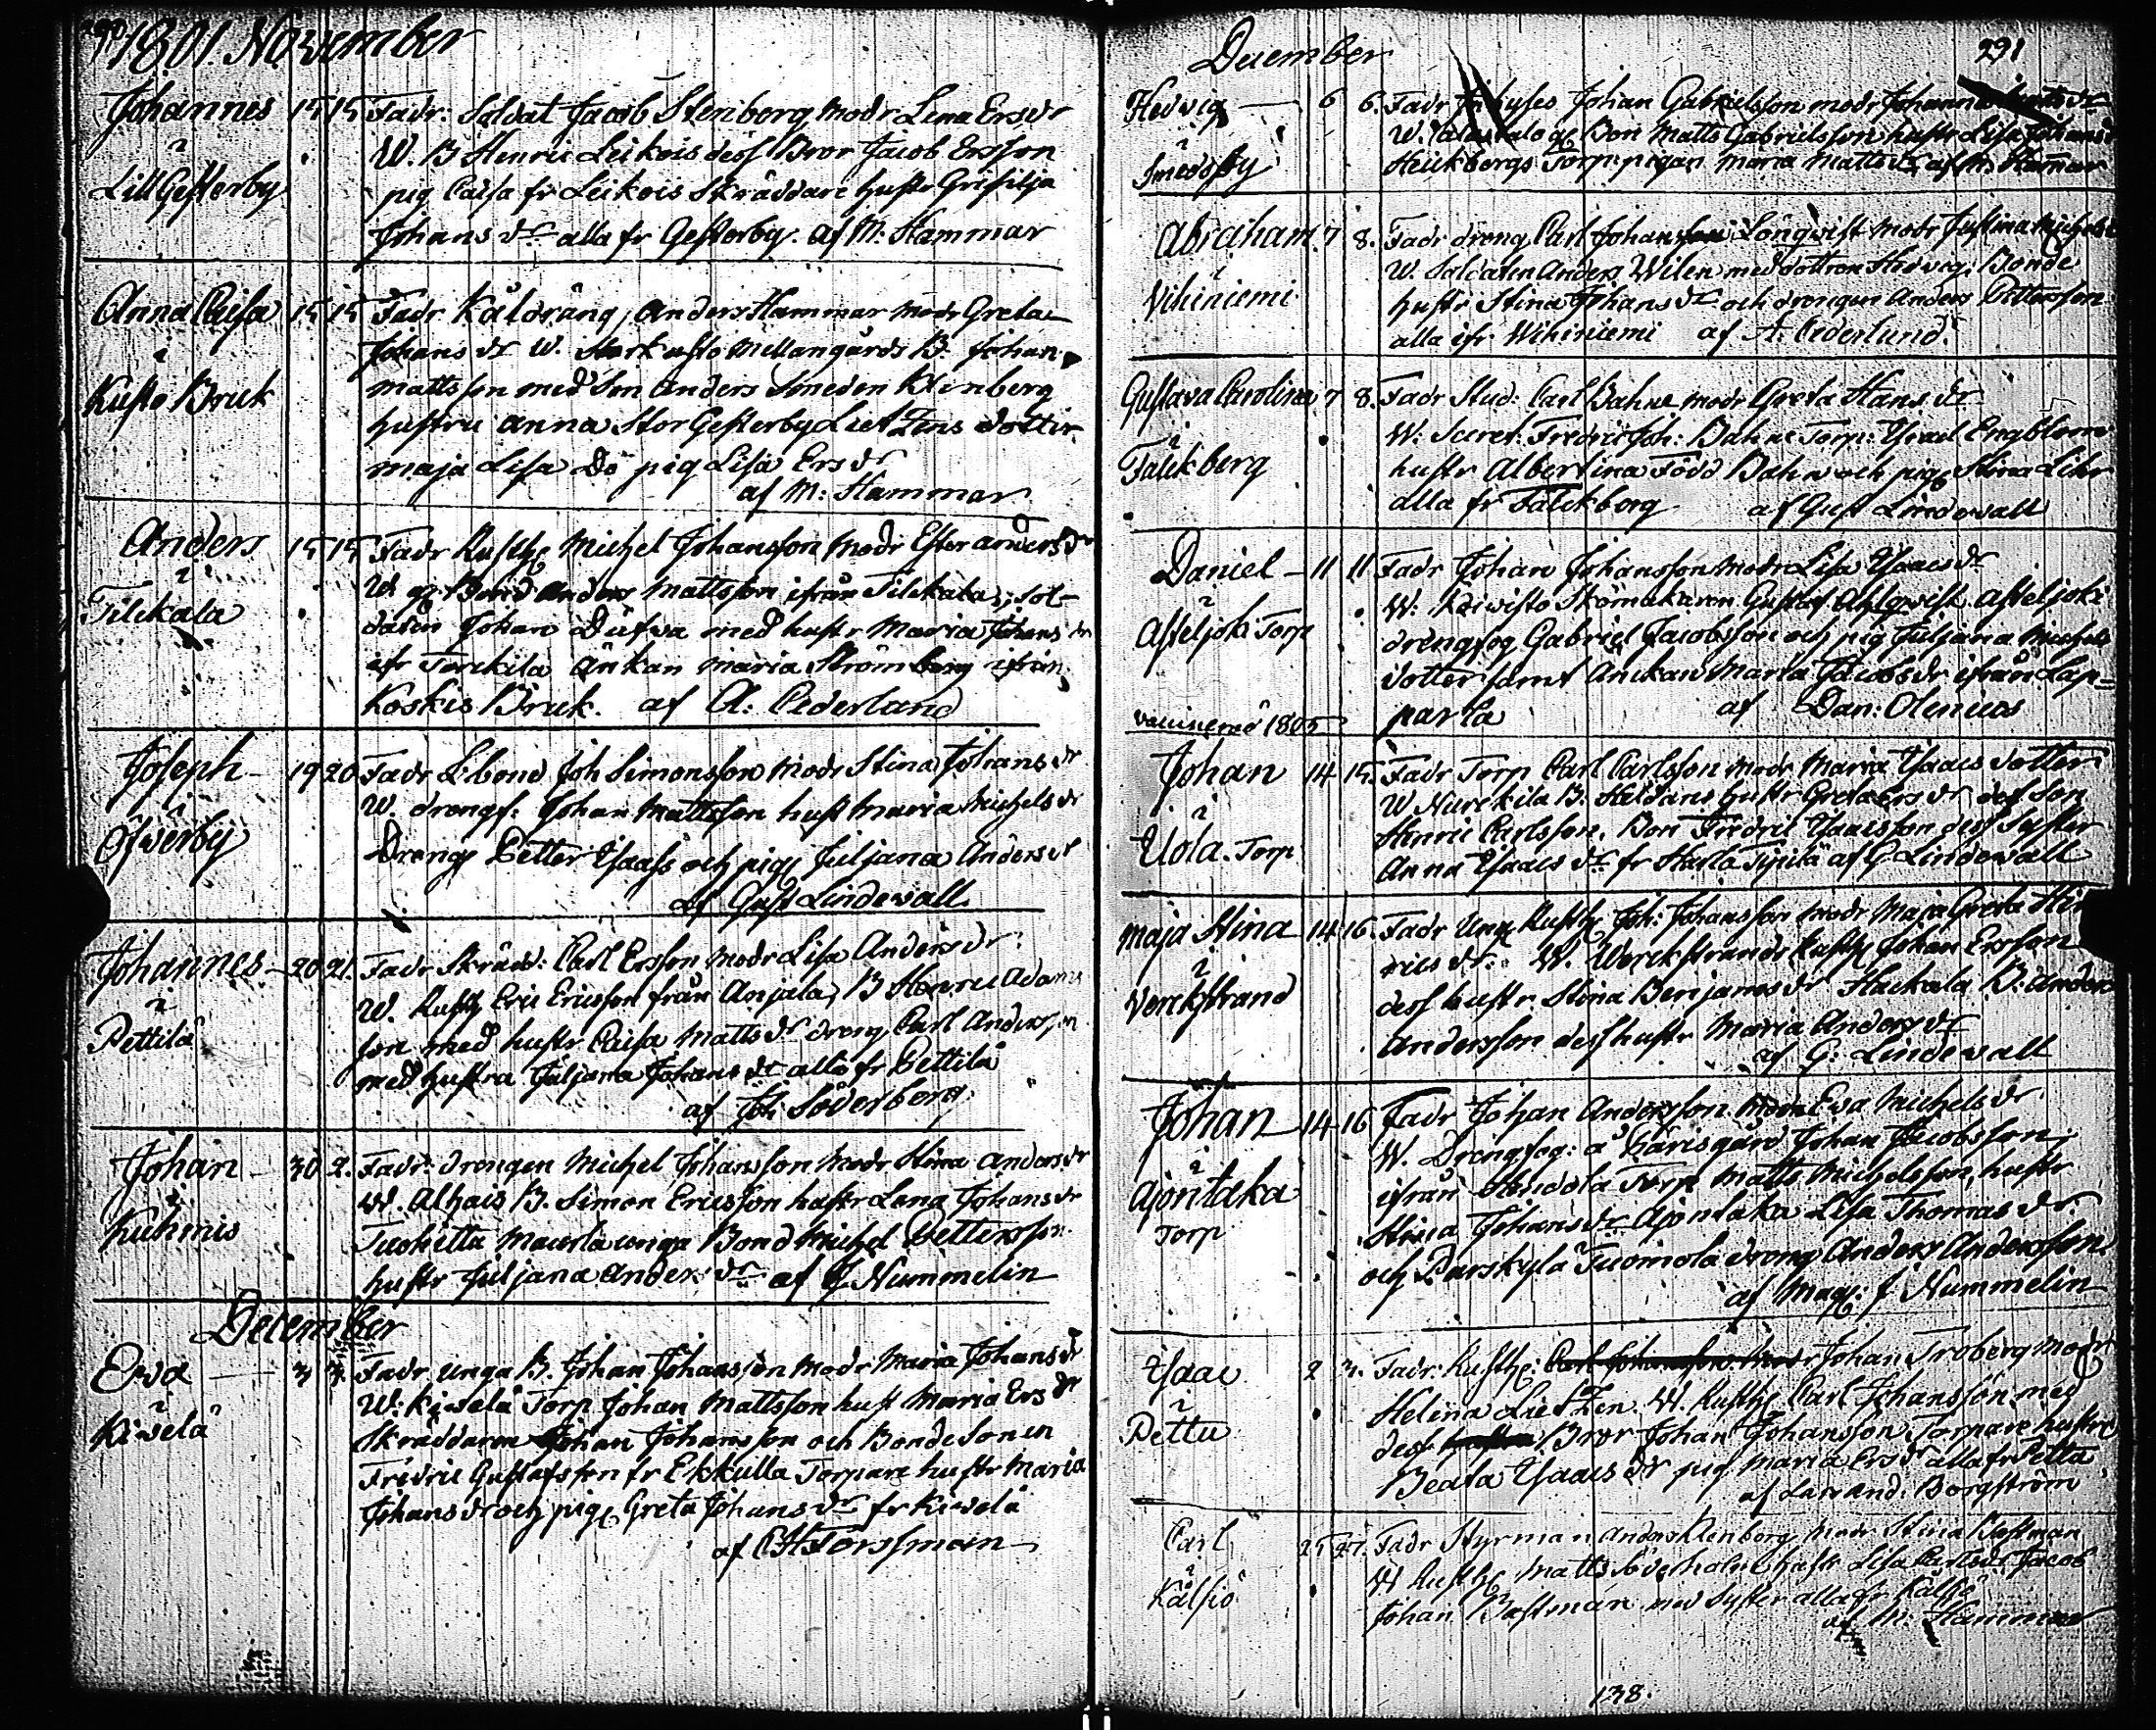 1801. November
Johannes 15 15 Fadr: Soldat Jacob Stenberg modr Lena Ersdr
i W. B Henric Leikois dess Bror Jacob Ersson
Lill Gesterby pig Caisa fr Leikois Skräddare hustr
Johans dr alla fr Gesterby. af M. Hammar
Anna Caisa 15 15 Fadr Kåldräng Anders Hammar modr Greta
i Johans dr W. Kusto Mellangårds B. Johan
Kusto Bruk Mattsson med Son Anders Smeden Klinberg
hustru Anna Stor Gesterby Dotter
Maja Lisa Do pig Lisa Ersdr
af M: Hammar
Anders 15 15 Fadr Rusth Michel Johansson modr Ester Andersdr
i W. Bond Anders Mattsson ifrån Tilckala, Sol-
Tilckala daten Johan Dufva med hustr Maria Johans dr
ifr Torckila Änkan Maria Strömberg ifrån
Koskis Bruk. af A: Cederlund
Joseph 19 20 Fadr Bond Joh Simonsson modr Stina Johans dr
i W. drengs: Johan Mattsson hust Maria Michels dr
Öfverby Dreng Petter Ysaacs och pig Juljana Anders dr
af Gust Lindevall
Johannes 20 21. Fadr Skräd: Carl Ersson modr Lisa Anders dr
i W. Rusth Eric Ericsson från Anjala, B Henric Adams
Pettilä son med hustr Caisa Matts dr dreng Carl Andersson
med hustra Juljana Johans dr alla fr Pettilä
af Joh Söderberg
Johan 30 2. Fadr: drengen Michel Johansson modr Stina Anders dr
i W. Alhais B. Simon Ericsson hustr Lena Johans dr
Kuhmis unga Bond Michel Pettersson
hustr Juljana Anders dr af J Nummelin
December
Eva 3 3. Fadr unga B. Johan Johansson modr Maria Johans dr
i W: Kivelä Torp Johan Mattsson hust Maria Ers dr
Kivelä Skräddaren Johan Johansson och Bonde Sonen
Fredric Gustafsson fr Ekkulla Torpare hustr Maria
Johans dr och pig Greta Johans dr fr Kivelä
af C H Forssman
December 291
Hedvig 6 6. Fadr Johan Gabrielsson modr
i W. Bon Matts Gabrielsson hustr Lisa Johans dr
Smedsby Torp: pigan Maria Matts dr af M. Hammar
Abraham 7 8. Fadr dreng Carl Johansson Löngqvist modr Justina Michels
i W. Soldaten Anders Wilen med dottren Hedvig, Bonde
Vihiniemi hustr Stina Johans dr och drengen Anders Pettersson
alla ifr Wihiniemi af A. Cederlund.
Gustava Carolina 7 8. Fadr Stud: Carl Bahne modr Greta Hans dr
i W. Secret: Fredric Joh: Bahne Torp: Ysrael Engblom
Falckberg hustr Albertina Född Bahne och pig Stina
alla fr Falckberg af Gust Lindevall
Daniel 11 11 Fadr Johan Johansson modr Lisa Ysaacs dr
i W. Koivisto Skomakaren Gustaf Ahlqvist Asteljoki
Asteljoki Torp drengfog Gabriel Jacobsson och pig Juljana Michels
dotter samt Änckan Maria Jacobs dr ifrån Lap-
vaccinerad 1805 parla af Dan: Olenius
Johan 14 15. Fadr Torp Carl Carlsson modr Maria Ysaacs dotter
i W Nurckila B: hustr Greta Ers dr dess Son
Uola. Torp Henric Carlsson. Bon Fredric Ysaacsson dess Syster
Anna Ysaacs dr fr af G Lindevall
Maja Stina 14 16. Fadr Ung Rusth Joh: Johansson modr Maja Greta Hin
i rics dr. W. Verckstrands Rusth Johan Ersson
Verckstrand dess hustr. Stina Benjams dr Hackala B: Anders
Andersson dess hustr Maria Anders dr
af G: Lindevall
Johan 14 16 Fadr Johan Andersson modr Eva Michels dr
i W. Drengfog: å Carisgård Johan Jacobsson
Ajontaka ifrån Torp Matts Michelsson, hustr
Torp Stina Johans dr Ajontaka Lisa Thomas dr
och Parskylä Tuomola dreng Anders Andersson
af Mag: J Nummelin
Ysaac 2 3. Fadr: Rusth: Carl Johansson Johan Troberg modr
i Helena Lietzen. W. Rusth Carl Johansson med
Pettu dess hustru Bror Johan Johansson Torpare hustru
Beata Ysaacs dr pig Maria Ers dr alla fr Pettu
af Borgström
Carl 25 27. Fadr Styrman Anders Klenberg modr Stina Bastman
i W Rusth Matts Söderholm hustr Lisa Carls dr Jacob
Kålsiö Johan Bastman med Syster alla fr Kålsiö
af M. Hammar
138.